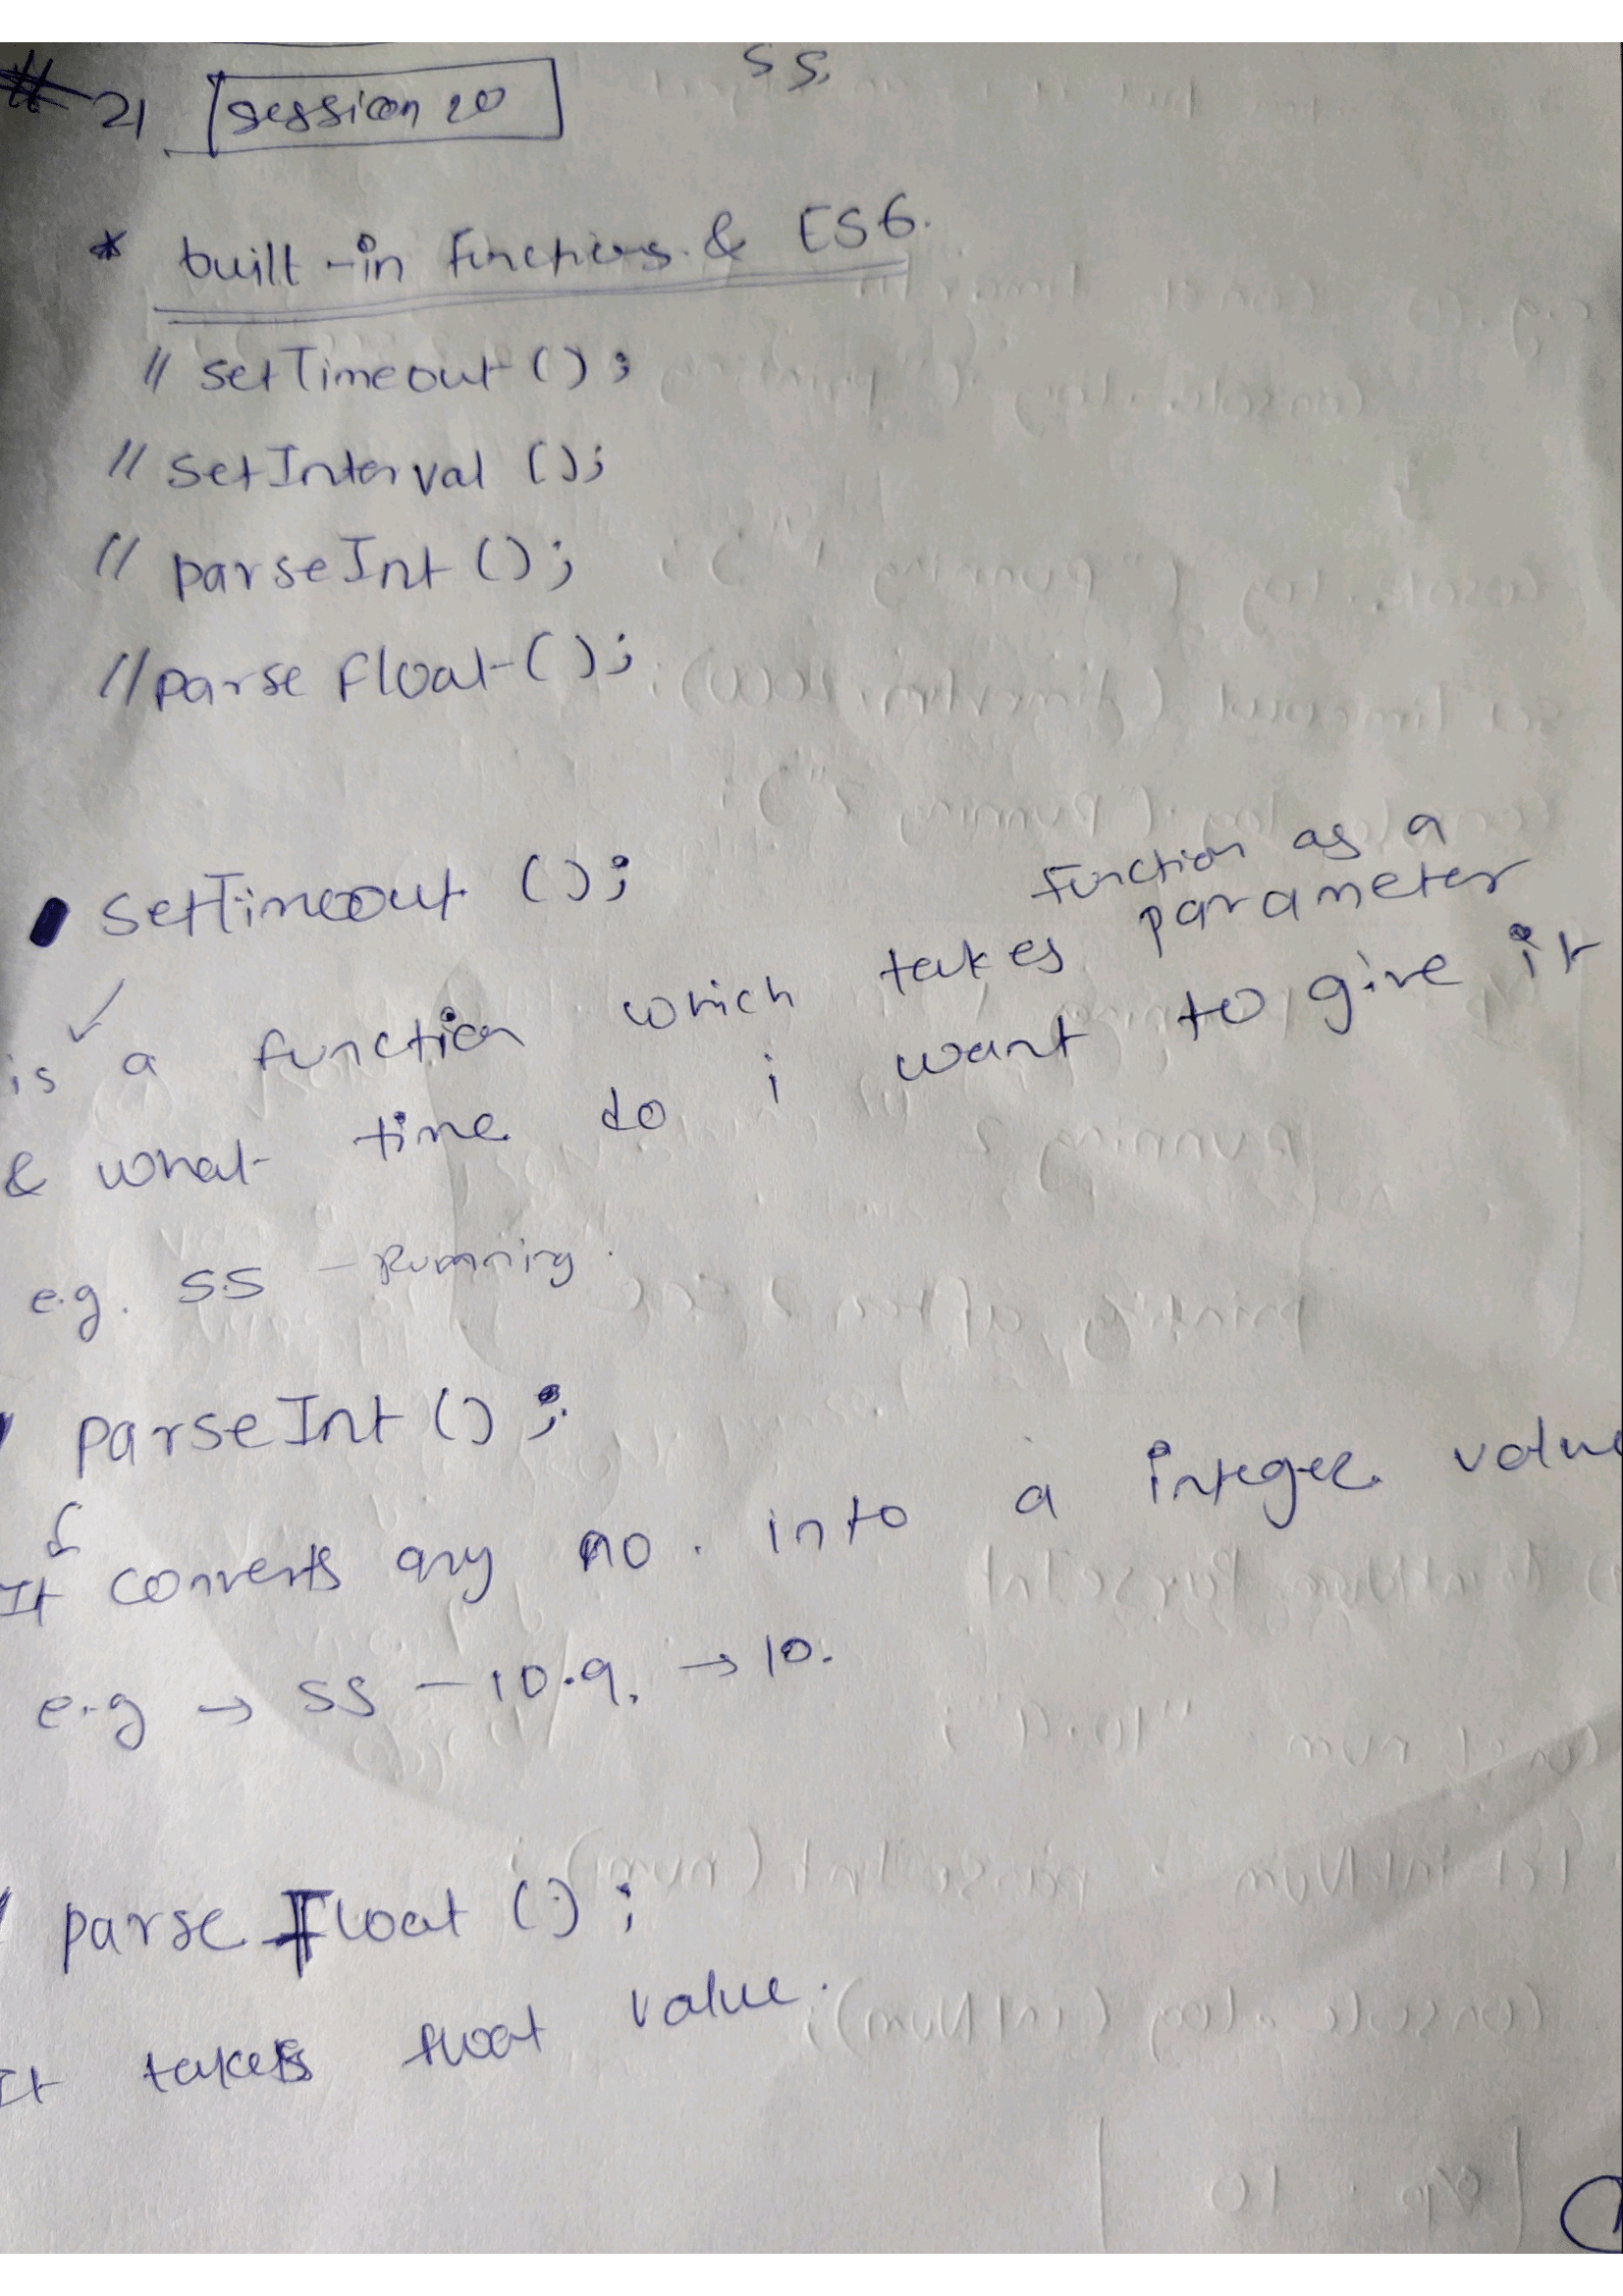 SS.
# 21 session 20
* built-in functions & ES6.
// setTimeout ();
// setInterval ();
// parseInt ();
// parse float ();
setTimeout ();
function as a
is a function which takes parameter
& what time do i want to give it
e.g. SS - Running.
parseInt ();
It converts any no. into a integer value
e.g → SS - 10.9. → 10.
parse Float ();
It takes float value.